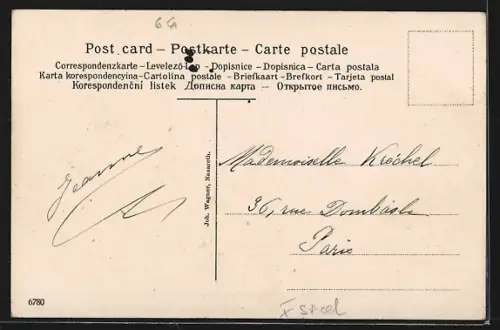 6G
Post card – Postkarte – Carte postale
Correspondenzkarte – Levelező-Lap – Dopisnice – Dopisnica – Carta postala
Karta korespondencyina – Cartolina postale – Briefkaart – Brefkort – Tarjeta postal
Korespondenční listek Дописна карта – Открытое письмо.
Jeanne
Joh. Wagner, Nazareth.
Mademoiselle Kréchel
36, rue Dombasle
Paris
6780
Israel